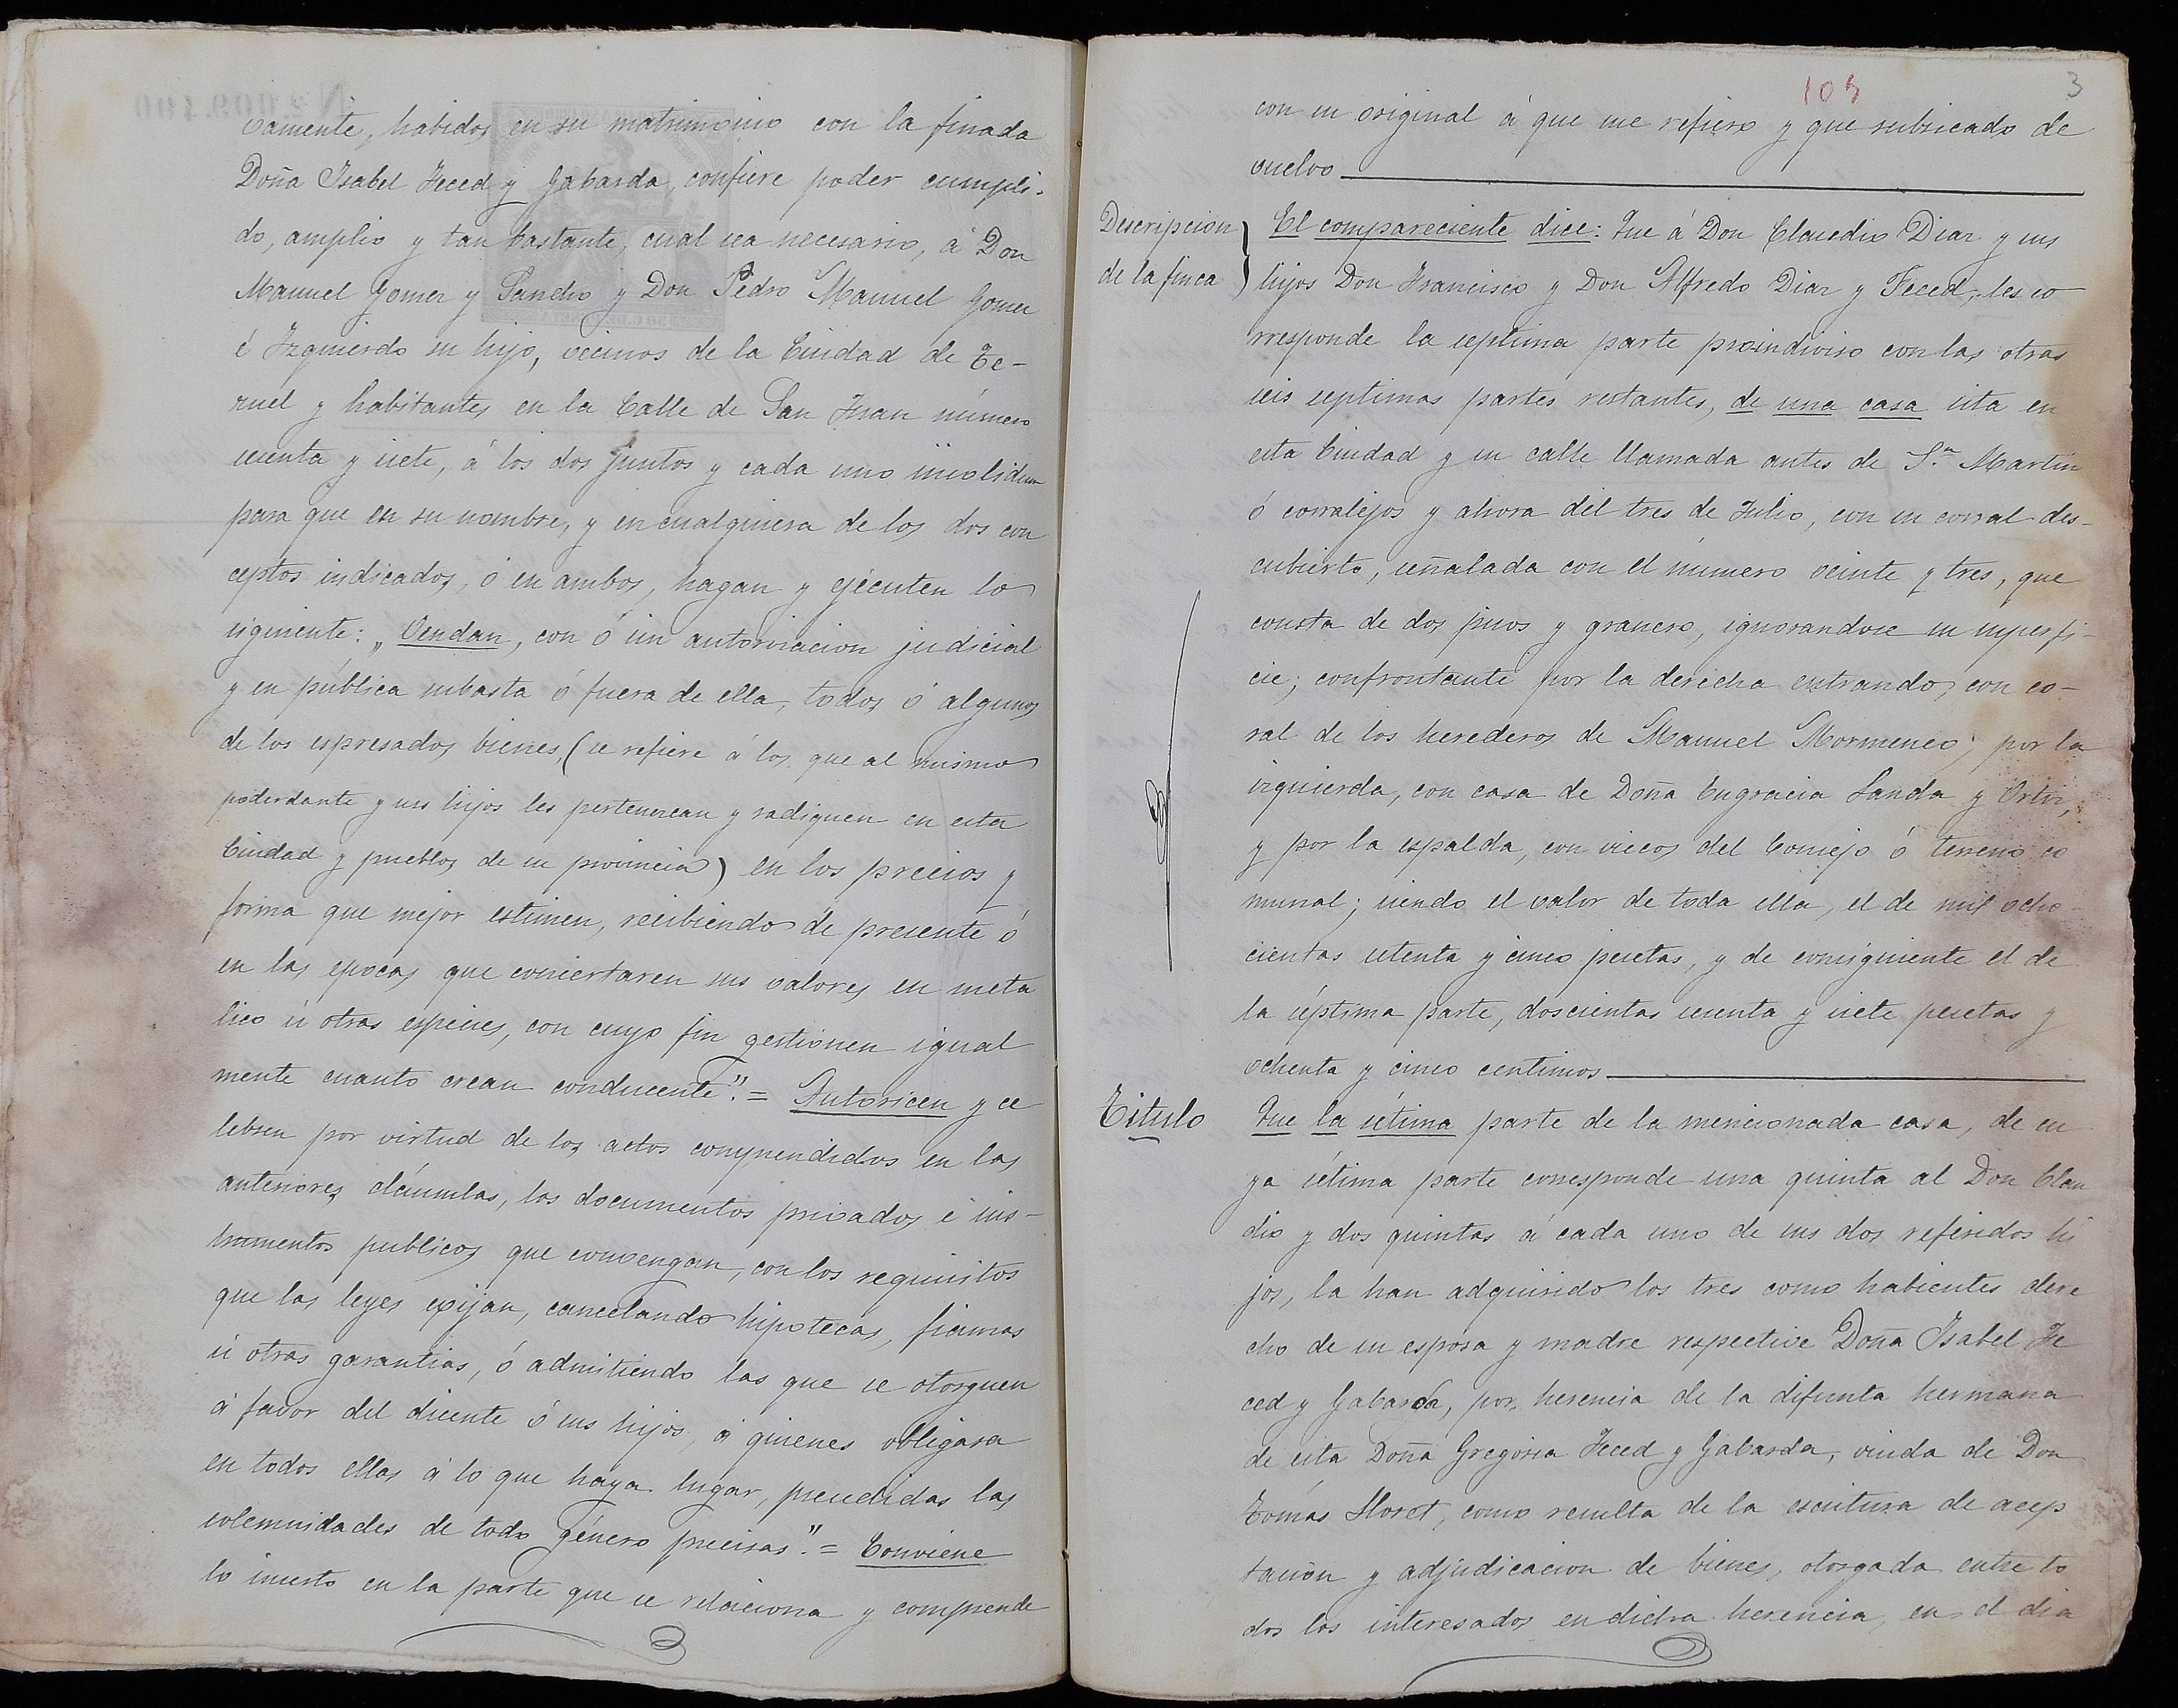 vamente, habidos en su matrimonio con la finada
Doña Isabel Feced y Gabarda, confiere poder cumpli-
do, amplio y tan bastante, cual sea necesario, á Don
Manuel Gomez y Sancho y Don Pedro Manuel Gomez
é Izquierdo su hijo, vecinos de la Ciudad de Te-
ruel y habitantes en la Calle de San Juan número
sesenta y siete, á los dos juntos y cada uno insolidum
para que en su nombre, y en cualquiera de los dos con
ceptos indicados, ó en ambos, hagan y ejecuten lo
siguiente: „Vendan, con ó sin autorizacion judicial
y en pública subasta ó fuera de ella, todos ó algunos
de los espresados bienes, (se refiere á los que al mismo
poderdante y sus hijos les pertenezcan y radiquen en esta
Ciudad y pueblos de su provincia) en los precios y
forma que mejor estimen, recibiendo de presente ó
en las epocas que concertaren sus valores en meta
lico ú otras especies, con cuyo fin gestionen igual
mente cuanto crean conducente". = Autoricen y ce
lebren por virtud de los actos comprendidos en las
anteriores cláusulas, los documentos privados é ins-
trumentos publicos que convengan, con los requisitos
que las leyes exijan, cancelando hipotecas, fianzas
ú otras garantias, ó admitiendo las que se otorguen
á favor del dicente ó sus hijos, á quienes obligara
en todos ellos á lo que haya lugar, precedidas las
solemnidades de todo género precisas". = Conviene
lo inserto en la parte que se relaciona y comprende
105
3
con su original á que me refiero y que rubricado de
vuelvo
Descripcion
de la finca
El compareciente dice: Que á Don Claudio Diaz y sus
hijos Don Francisco y Don Alfredo Diaz y Feced, les co
rresponde la septima parte proindiviso con las otras
seis septimas partes restantes, de una casa sita en
esta Ciudad y su calle llamada antes de S.n Martin
ó corralejos y ahora del tres de Julio, con su corral des-
cubierto, señalada con el número veinte y tres, que
consta de dos pisos y granero, ignorandose su superfi-
cie; confrontante por la derecha entrando, con co-
ral de los herederos de Manuel Mormeneo; por la
izquierda, con casa de Doña Engracia Landa y Ortiz;
y por la espalda, con viccos del Concejo ó terreno co
munal; siendo el valor de toda ella, el de mil ocho-
cientas setenta y cinco pesetas, y de consiguiente el de
la séptima parte, doscientas sesenta y siete pesetas y
ochenta y cinco centimos
Titulo
Que la sétima parte de la mencionada casa, de cu
ya sétima parte corresponde una quinta al Don Clau
dio y dos quintas á cada uno de sus dos referidos hi
jos, la han adquirido los tres como habientes dere
cho de su esposa y madre respective Doña Isabel Fe
ced y Gabarda, por herencia de la difunta hermana
de esta Doña Gregoria Feced y Gabarda, viuda de Don
Tomás Lloret, como resulta de la escritura de acep
tación y adjudicacion de bienes, otorgada entre to
dos los interesados en dicha herencia, en el dia